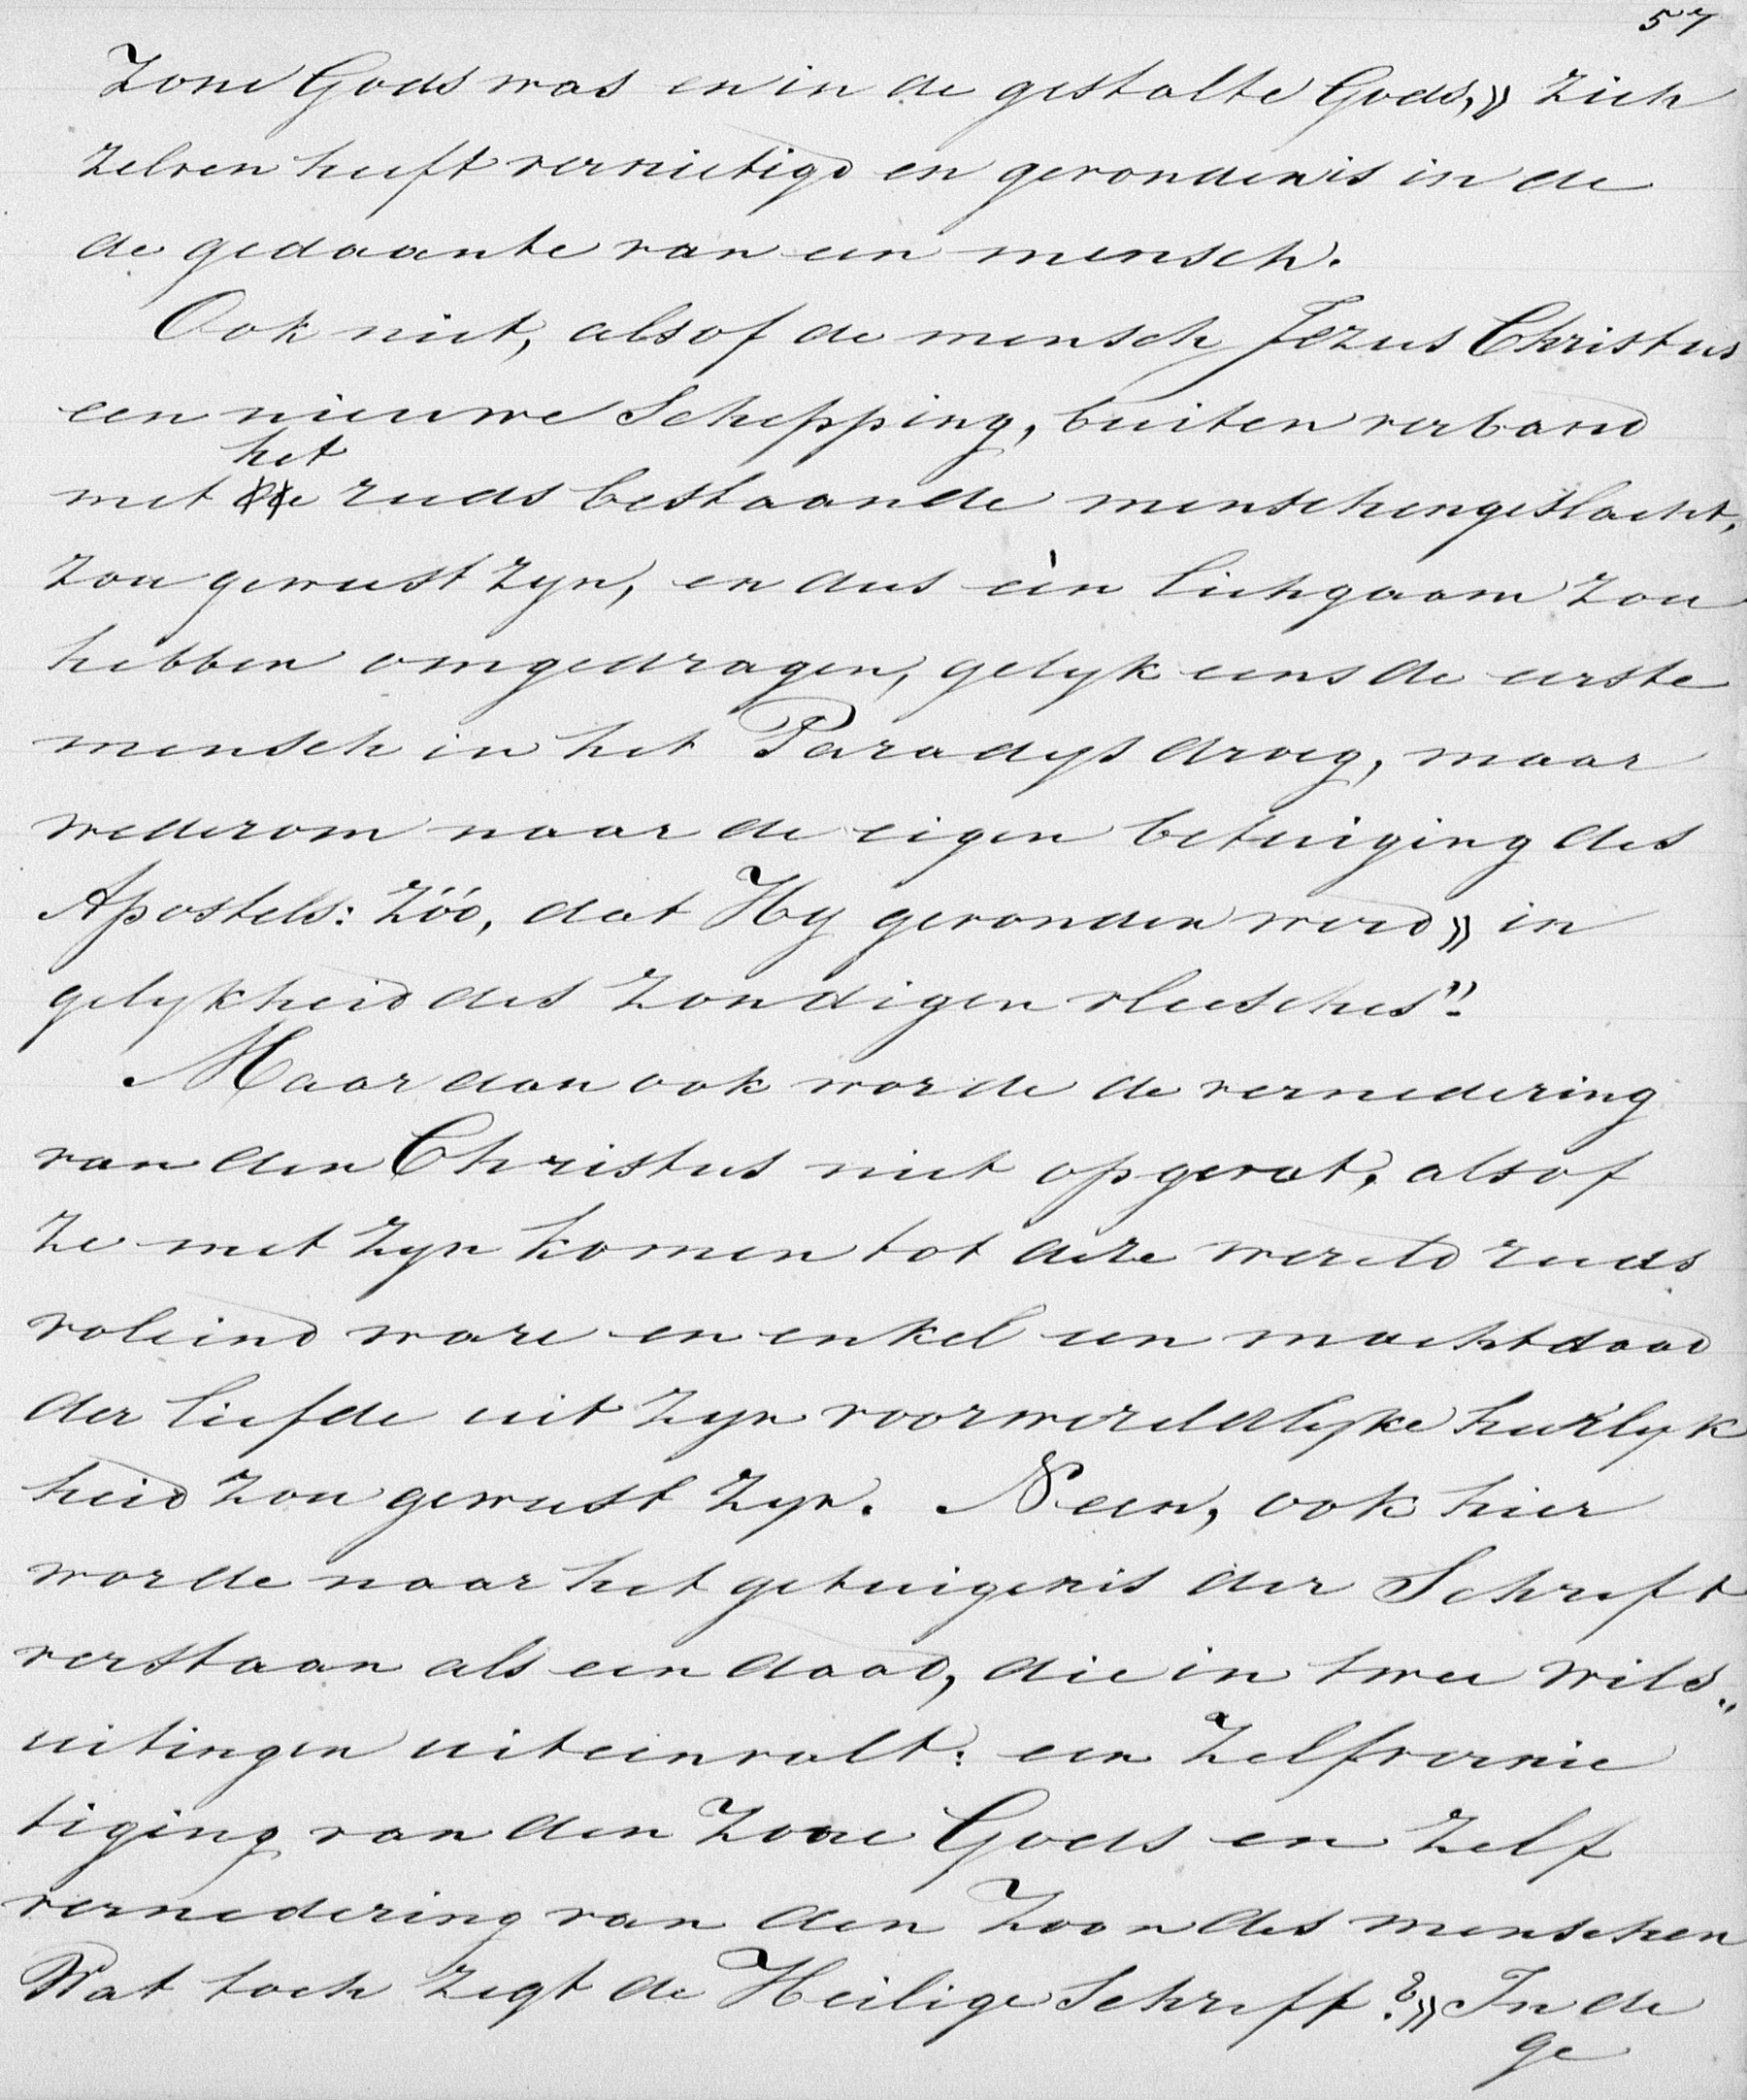 57
Zone Gods was en in de gestalte Gods, » Zich
Zelven heeft vernietigd en gevonden is in de
de gedaante van een mensch.
Ook niet, alsof de mensch Jezus Christus
een nieuwe Schepping, buiten verband
het
met de reeds bestaande menschengeslacht,
zou geweest zyn, en dus één lichgaam zou
hebben omgedragen, gelyk eens de eerste
mensch in het Paradys droeg, maar
wederom naar de eigen betuiging des
Apostels: Zóó, dat Hy gevonden werd » in
gelykheid des Zondigen vleesches".
Maar dan ook worde de vernedering
van den Christus niet opgevat, alsof
Ze met Zyn komen tot deze wereld reeds
voleind ware en enkel een machtdaad
der liefde uit Zyn voorwereldlyke heerlyk
heid zou geweest zyn. Neen, ook hier
worde naar het getuigenis der Schrift
verstaan als een daad, die in twee wils„
uitingen uiteenvalt: een Zelfvernie
tiging van den Zone Gods en Zelf
vernedering van den Zoon des menschen
Wat toch zegt de Heilige Schrift? » In de
ge